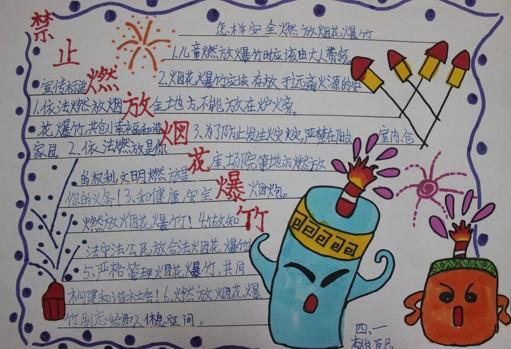 禁止燃放烟花爆竹
怎样安全燃放烟花爆竹
1.儿童燃放爆竹时应该由大人带领
2.烟花爆竹应该存放于远离火源的安
全地方,不能放在炉火旁。
3.为了防止发生火灾,严禁在阳台、室内、仓
库、场院等地方燃放
火烟炮。
宣传标语
1.依法燃放烟
花爆竹,共创幸福和谐
家园 2.依法燃放是你
的权利,文明燃放是
你的义务!3.和健康,安全
燃放火烟花爆竹!4.做知
法守法公民,放合法火烟花爆竹
5.严格管理火烟花爆竹,共同
构建和谐社会!6.燃放烟花爆
竹别忘给别人休息空间。
四、一